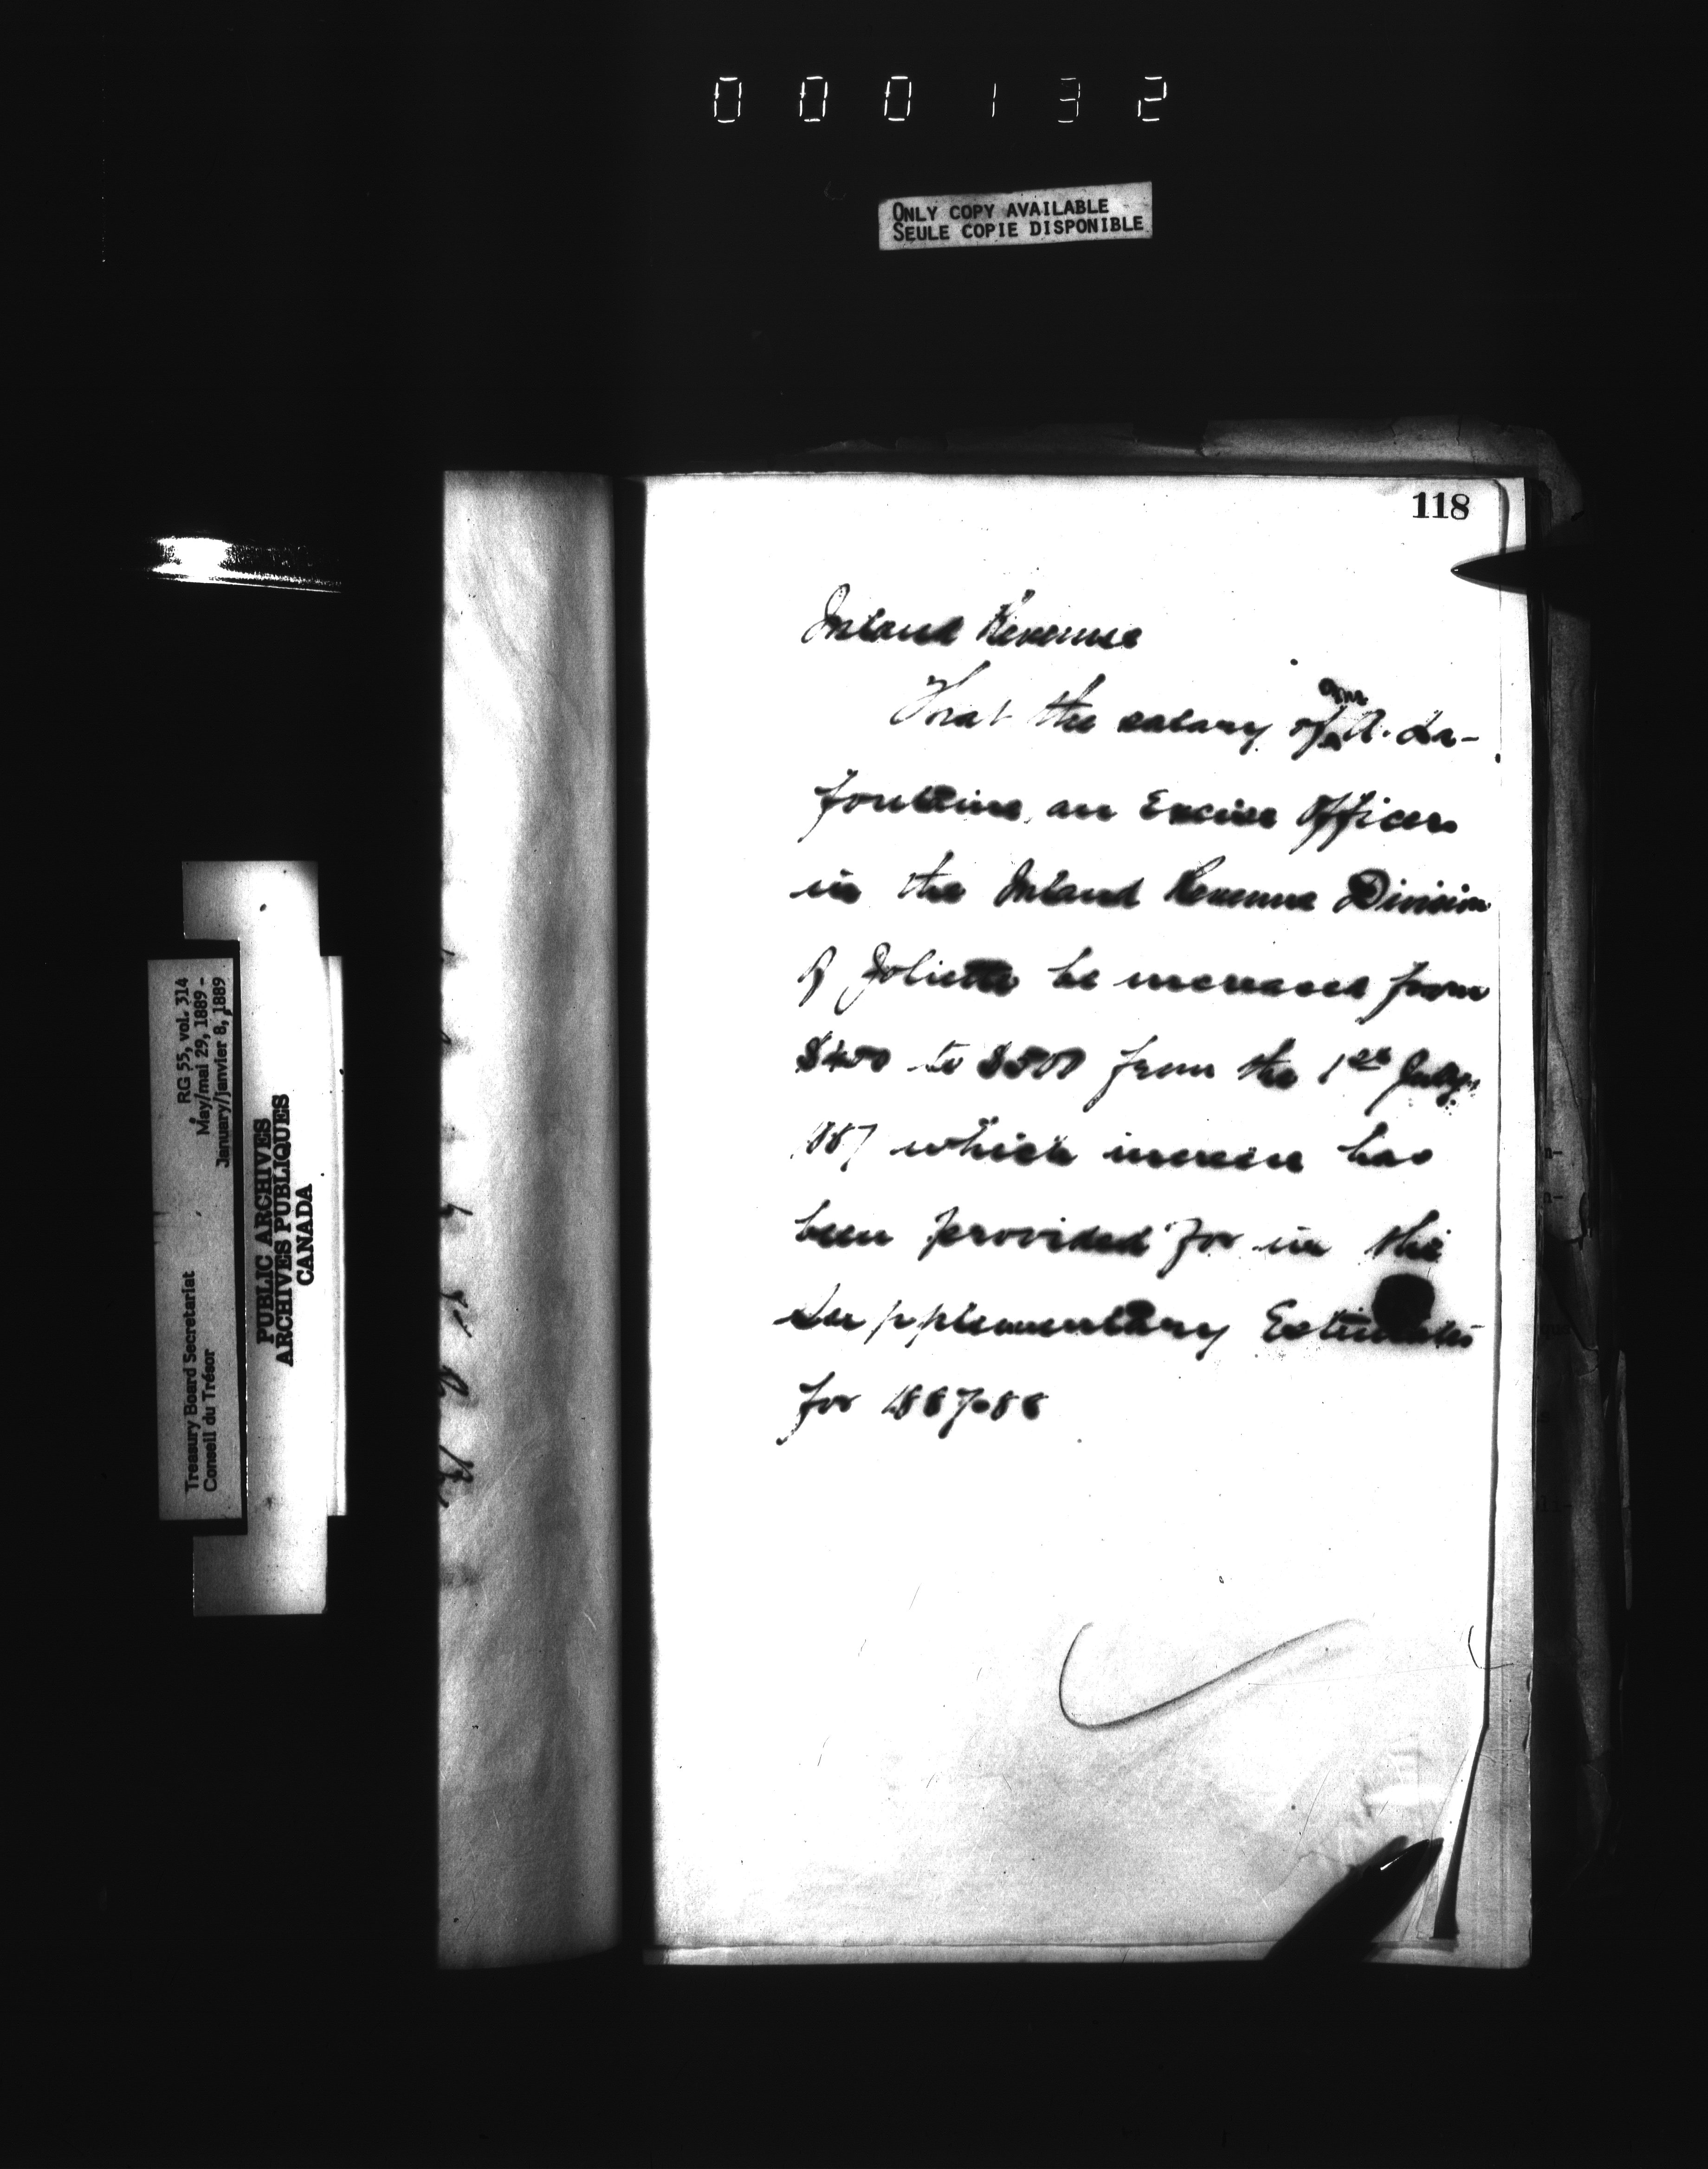 000132
ONLY COPY AVAILABLE
SEULE COPIE DISPONIBLE
118
Inland Revenue
That the salary of A. La-
fontaine, an Excise Officer
in the Inland Revenue Division
of Joliette be increased from
$400 to $500 from the 1st July
1887 which increase has
been provided for in the
Supplementary Estimates
for 1887-88
RG 55, vol. 314
May/mai 29, 1889 -
January/janvier 8, 1889
Treasury Board Secretariat
Conseil du Trésor
PUBLIC ARCHIVES
ARCHIVES PUBLIQUES
CANADA